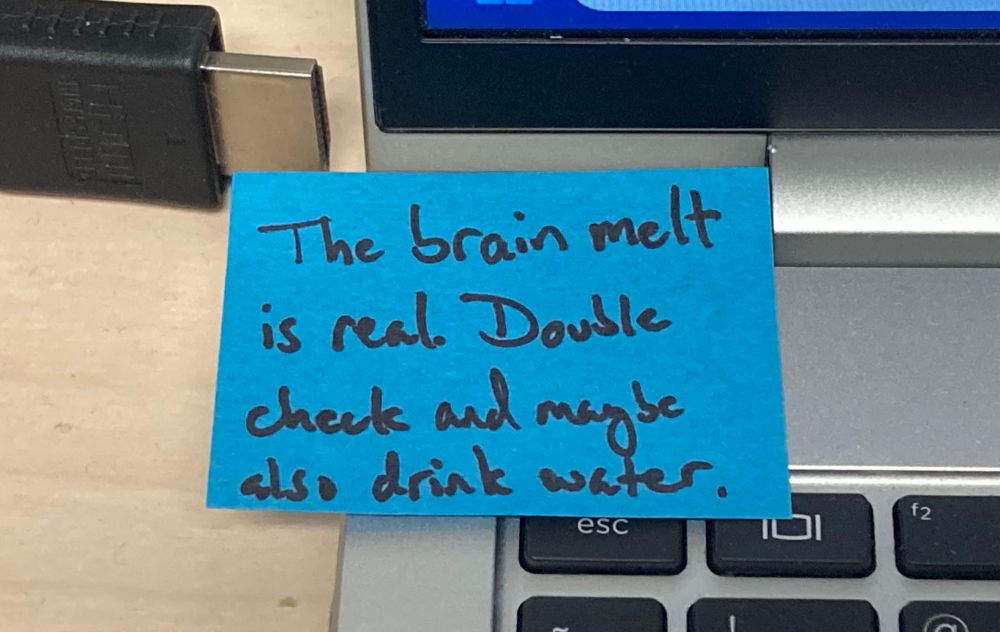 The brain melt
is real. Double
check and maybe
also drink water.
esc
f2